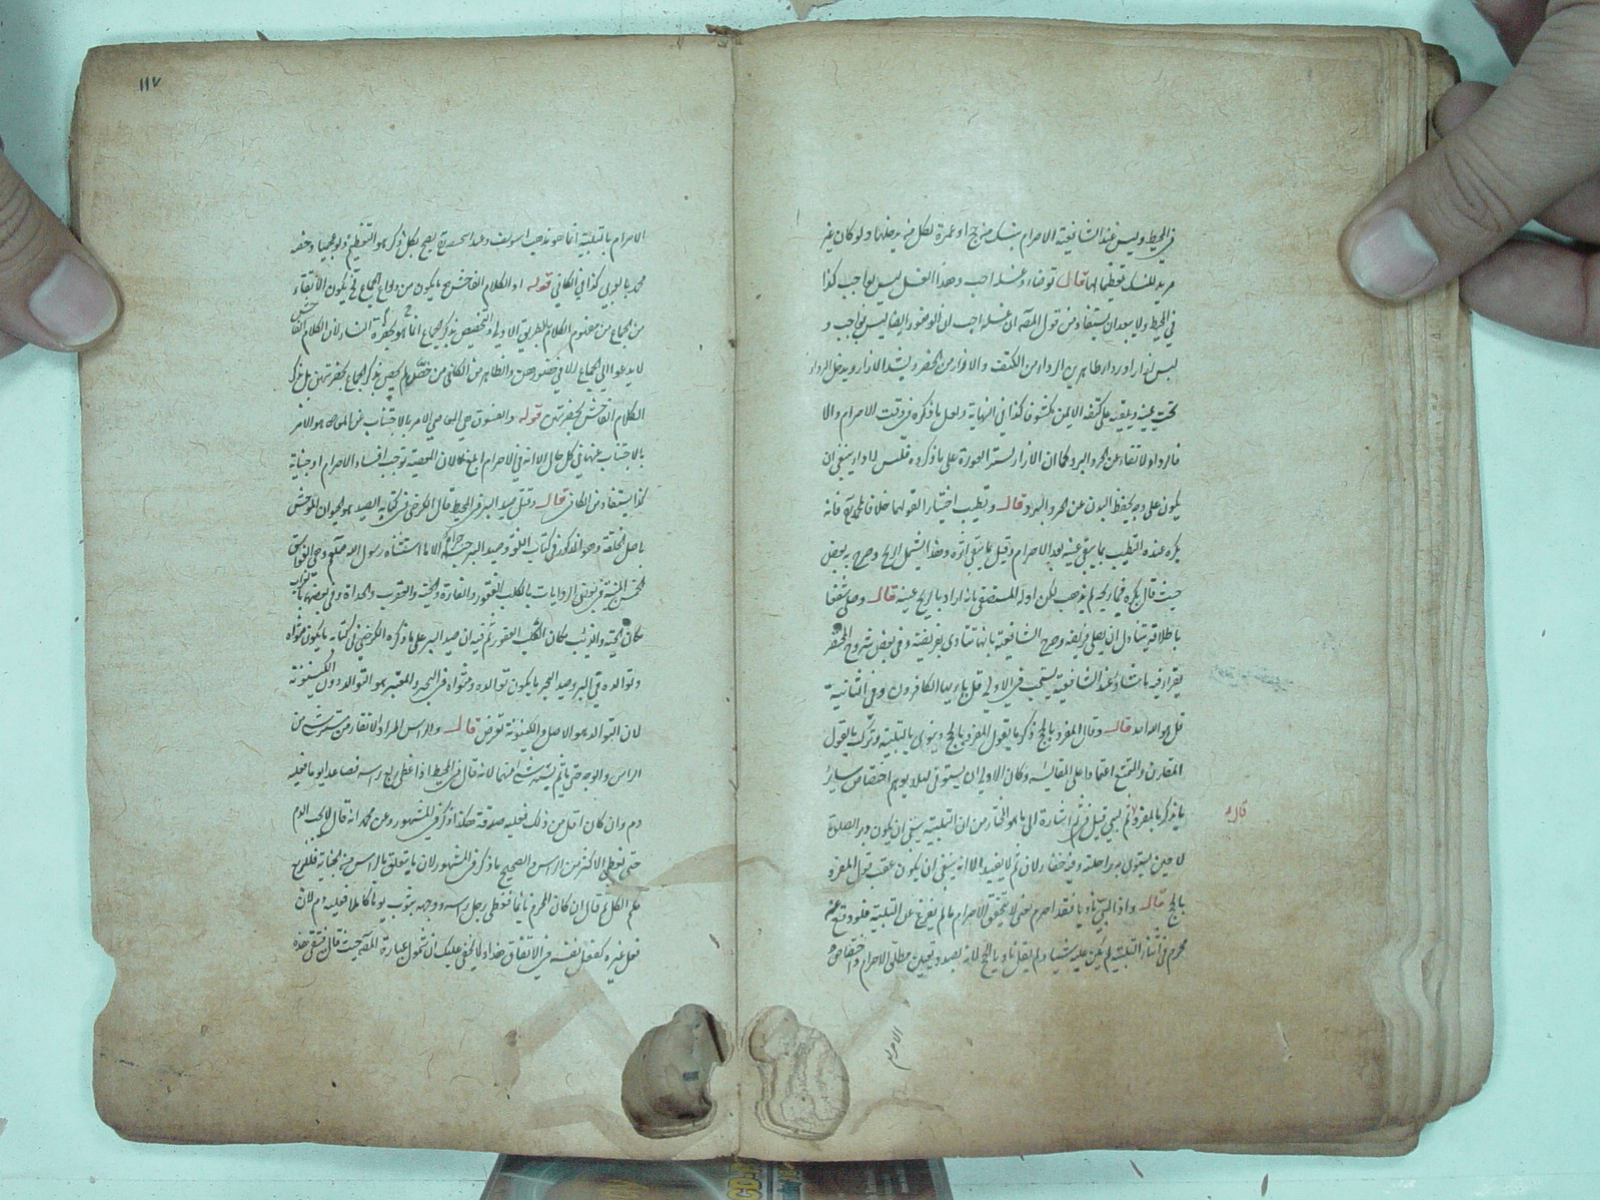 في المحيط وليس عند الشافعية الاحرام بنسك من حج او عمرة بكل من يدخلها ولو كان غير
مريد للنسك تعظيما لها قال توضاء وغسله احب وهذا الغسل ليس بواجب كذا
في المحيط ولا يبعد ان يستفاد من قول المص ان غسله احب ان الوضوء ايضا ليس بواجب و
لبس ازار اورداء طاهرين الرداء من الكتف والازار من الخصر ويشد الازار ويدخل الرداء
تحت يمينه ويلقيه على كتفه الايمن مكشوفا كذا في النهاية ولعل ما ذكره في وقت الاحرام والا
فالرداء لاتقاء من الحر والبرد كما ان الازار لستر العورة على ما ذكروه فلبس الرداء ينبغي ان
يكون على وجه يحفظ البدن عن الحر والبرد قال وتطيب اختيار القولهما خلافا لمحمد فانه
يكره عنده التطيب بما يبقى عينه بعد الاحرام وقيل بما يبقى اثره وهذا يشمل الريح وصرح به بعض
حيث قال يكره فيما ريحه لم يذهب لكن اوله المستصفى بانه اراد بالريح عينه قال وصلى شفعا
باطلاقه يتناول ان يصلي فريضة وصرح الشافعية بانها تتادى بفريضة وفي بعض شروح المختصر
يقراء فيه ما شاء وعند الشافعية يستحب في الاولى قل يا ايها الكافرون وفي الثانية
قل هو الله احد قال وقال المفرد بالحج ذكر ما يقول المفرد بالحج وينوي بالتلبية وترك ما يقول
المقارن والمتمتع اعتمادا على المقايسة وكان الاولى ان يستوفى لئلا يوهم اختصاص سائر
ما يذكر بالمفرد ثم لبى قيل في ثم اشارة الى ما هو المختار من ان التلبية ينبغي ان يكون دبر الصلوة
لا حين يستوي به راحلته وفيه خفاء لان ثم لا يفيد الا انه ينبغي ان يكون عقب قول المفرد
بالحج قال واذا لبى ناويا فقد احرم يعني لا يتحقق الاحرام ما لم يفرغ عن التلبية فلو وقع منه
محرم في اثناء التلبية لم يكن عليه شيئا ولم يقل ناويا بالحج لانه بصدد تعيين مطلق الاحرام واختصاص
قال
الاحرام
١١٧
الاحرام بالتلبية انما هو مذهب ابي يوسف وعند ابي حنيفة يصح بكل ذكر هو التعظيم ولو عجميا وخصه
محمد بالعربي كذا في الكافي قوله او الكلام الفاحش
من الجماع من مفهوم الكلام بالطريق الاولى والتخصيص بذكر الجماع انما هو بحضرة النساء لان الكلام الفاحش
لا يدعو الى الجماع الا في حضورهن والظاهر من الكافي من خصص لم يخص بذكر الجماع بحضرتهن بل بذكر
الكلام الفاحش بحضرتهن قوله والفسوق هي المعاصي الامر بالاجتناب عن المعاصي هو الامر
بالاجتناب عنها في كل حال الا انه في الاحرام ابلغ كالان المعصية توجب افساد الاحرام او جناية
كذا يستفاد من الكافي قال وقتل صيد البر في المحيط قال الكرخي في كتابه الصيد هو الحيوان المتوحش
باصل الخلقة وهو المذكور في كتاب اللغة وصيد البر حرام الا ما استثناه رسول الله صلعم وهي الفواسق
الخمس المشهورة في بعض الروايات بالكلب العقور والفارة والحية والعقرب والحداة وفي بعضها الغراب
مكان الحية والذئب مكان الكلب العقور ثم فيه ان صيد البر على ما ذكره الكرخي في كتابه ما يكون مثواه
وتوالده في البر وصيد البحر ما يكون توالده ومثواه في البحر والمعتبر هو التوالد دون الكينونة
لان التوالد هو الاصل والكينونة تعرض قال والراس المراد الاتقاء من ستر شيء من
الراس والوجه حتى يأثم بستر شيء منهما لانه قال في المحيط اذا غطى ربع راسه فصاعدا يوما فعليه
دم وان كان اقل من ذلك فعليه صدقة هكذا ذكر في المشهور وعن محمد انه قال لا يجب الدم
حتى يغطي الاكثر من الراس والصحيح ما ذكر في المشهور لان ما يتعلق بالراس من الجناية فللربع
حكم الكل ثم قال ان كان المحرم نائما فغطى رجل راسه ووجهه بثوب يوما كاملا فعليه دم لان
فعل غيره كفعل نفسه في الاتفاق هذا ولا يخفى عليك ان شمول عبارة المص حيث قال فتقى هذه